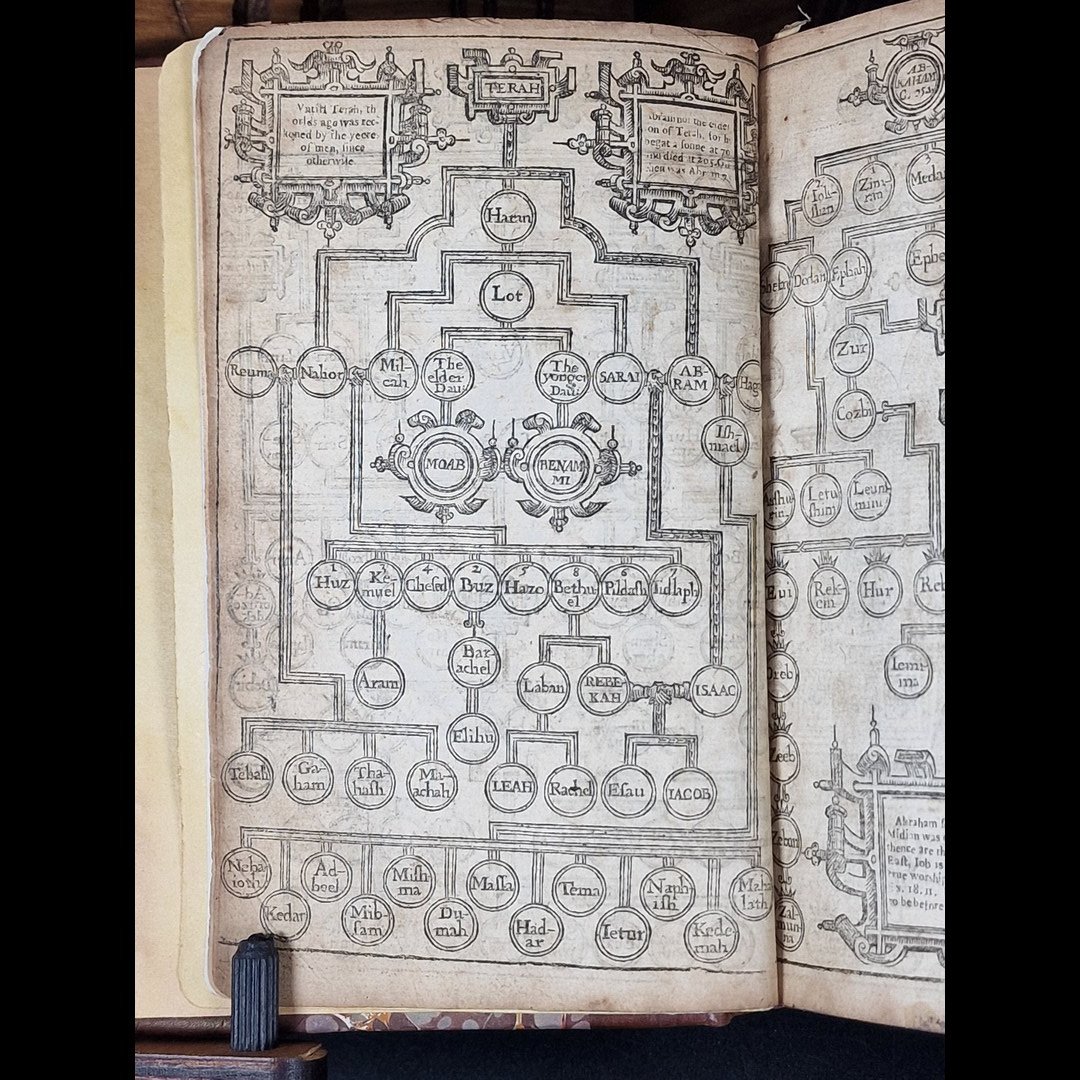 Vntill Terah, th
orlds age was rec-
koned by the yeere
of men, since
otherwise
TERAH
Abram not the elder
on of Terah, for h
begat a sonne at 70
and died at 205.
men was Abram
Haran
Lot
Reuma
Nahor
Mil-
cah
The
elder
Dau:
The
yonger
Dau:
SARAI
AB-
RAM
Haga
Ish-
mael
MOAB
BENAM-
MI
1
Huz
3
Ke-
muel
4
Chesed
2
Buz
5
Hazo
8
Bethu-
el
6
Pildash
Iidlaph
Aram
Bar-
achel
Elihu
Laban
REBE-
KAH
ISAAC
Tebah
Ga-
ham
Tha-
hash
Ma-
achah
LEAH
Rachel
Esau
IACOB
Neba-
ioth
Kedar
Ad-
beel
Mib-
sam
Mish-
ma
Du-
mah
Massa
Had-
ar
Tema
Ietur
Naph-
ish
Kede-
mah
Maha-
lath
AB-
RAHAM
2
Iok-
shan
1
Zim-
ran
3
Meda
Dedan
Ephah
Ephe
Zur
Cozbi
Asshu-
rim
Letu-
shim
Leum-
mim
Eui
Rek-
em
Hur
Reb
Oreb
Zeeb
Iemi-
ma
Zebah
Zal-
mun-
na
Abraham
Midian was
thence are th
East, Iob is
true worship
18. 11.
to be before